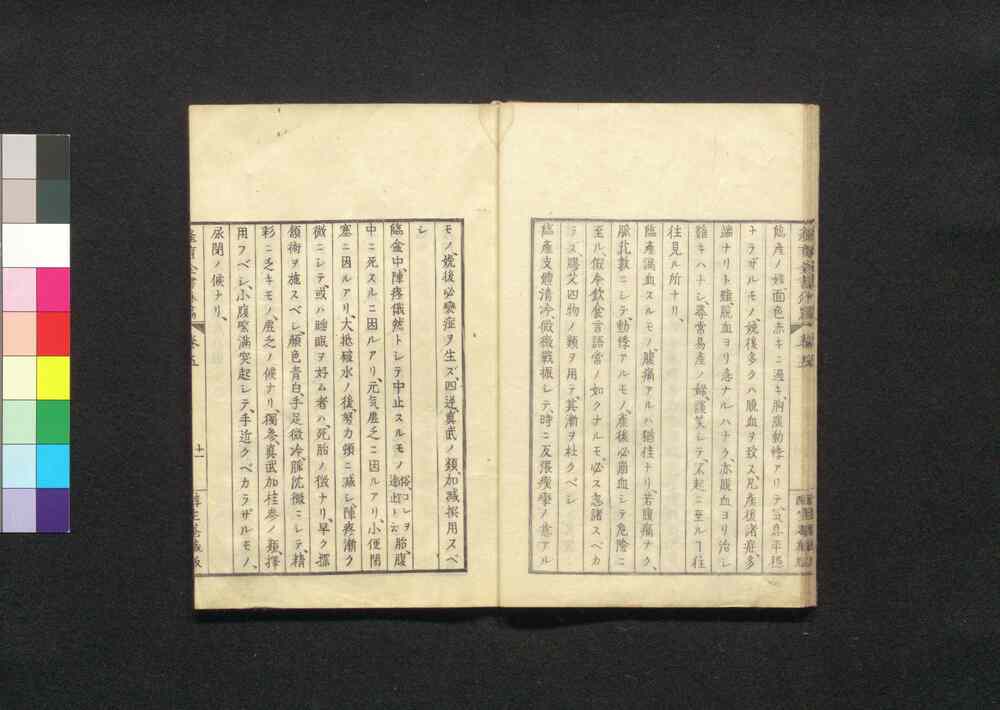 臨産ノ婦、面色赤キニ過キ、胸腹動悸アリテ、気息平穏
ナラザルモノ、娩後多クハ脱血ヲ致ス、凡産後諸症、多
端ナリト雖、脱血ヨリ急ナルハナク、亦脱血ヨリ治シ
難キハナシ、尋常易産ノ婦、談笑シテ、不起ニ至ルヿ往
往見ル所ナリ、
臨産漏血スルモノ、腹痛アルハ猶佳ナリ、若腹痛ナク、
脈乳数ニシテ、動悸アルモノ、産後必崩血シテ危険ニ
至ル、假令飲食言語常ノ如クナルモ、必ス忽諸スベカ
ラズ、膠艾四物ノ類ヲ用テ、其漸ヲ杜クベシ
臨産支體清冷、微微戰振シテ、時ニ反張瘈瘲ノ意アル
モノ、娩後必 症ヲ生ズ、四逆、真武ノ類、加減撰用スベ
シ
臨盆中、陣疼俄然トシテ中止スルモノ 俗ニコレヲ 逾止ト云 胎、腹
中ニ死スルニ因ルアリ、元気虚乏ニ因ルアリ、小便閉
塞ニ因ルアリ、大抵破水ノ後、努力頓ニ減シ、陣疼漸ク
微ニシテ、或ハ睡眠ヲ好ム者ハ、死胎ノ徴ナリ、早ク探
頷術ヲ施スベシ、顔色青白、手足微冷、脈沈微ニシテ、精
彩ニ乏キモノ、虚乏ノ候ナリ、獨參、真武加桂參ノ類、擇
用フベシ、小腹緊満突起シテ、手近クベカラザルモノ、
尿閉ノ候ナリ、
巻五
十一